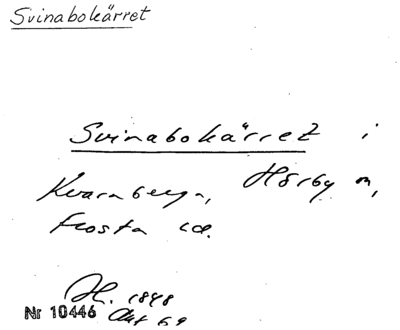 Svinabokärret
Svinabokärret i
Kvarnberga, Hörby sn,
Frosta hd.
H. 1848
Nr 10446 Akt 69